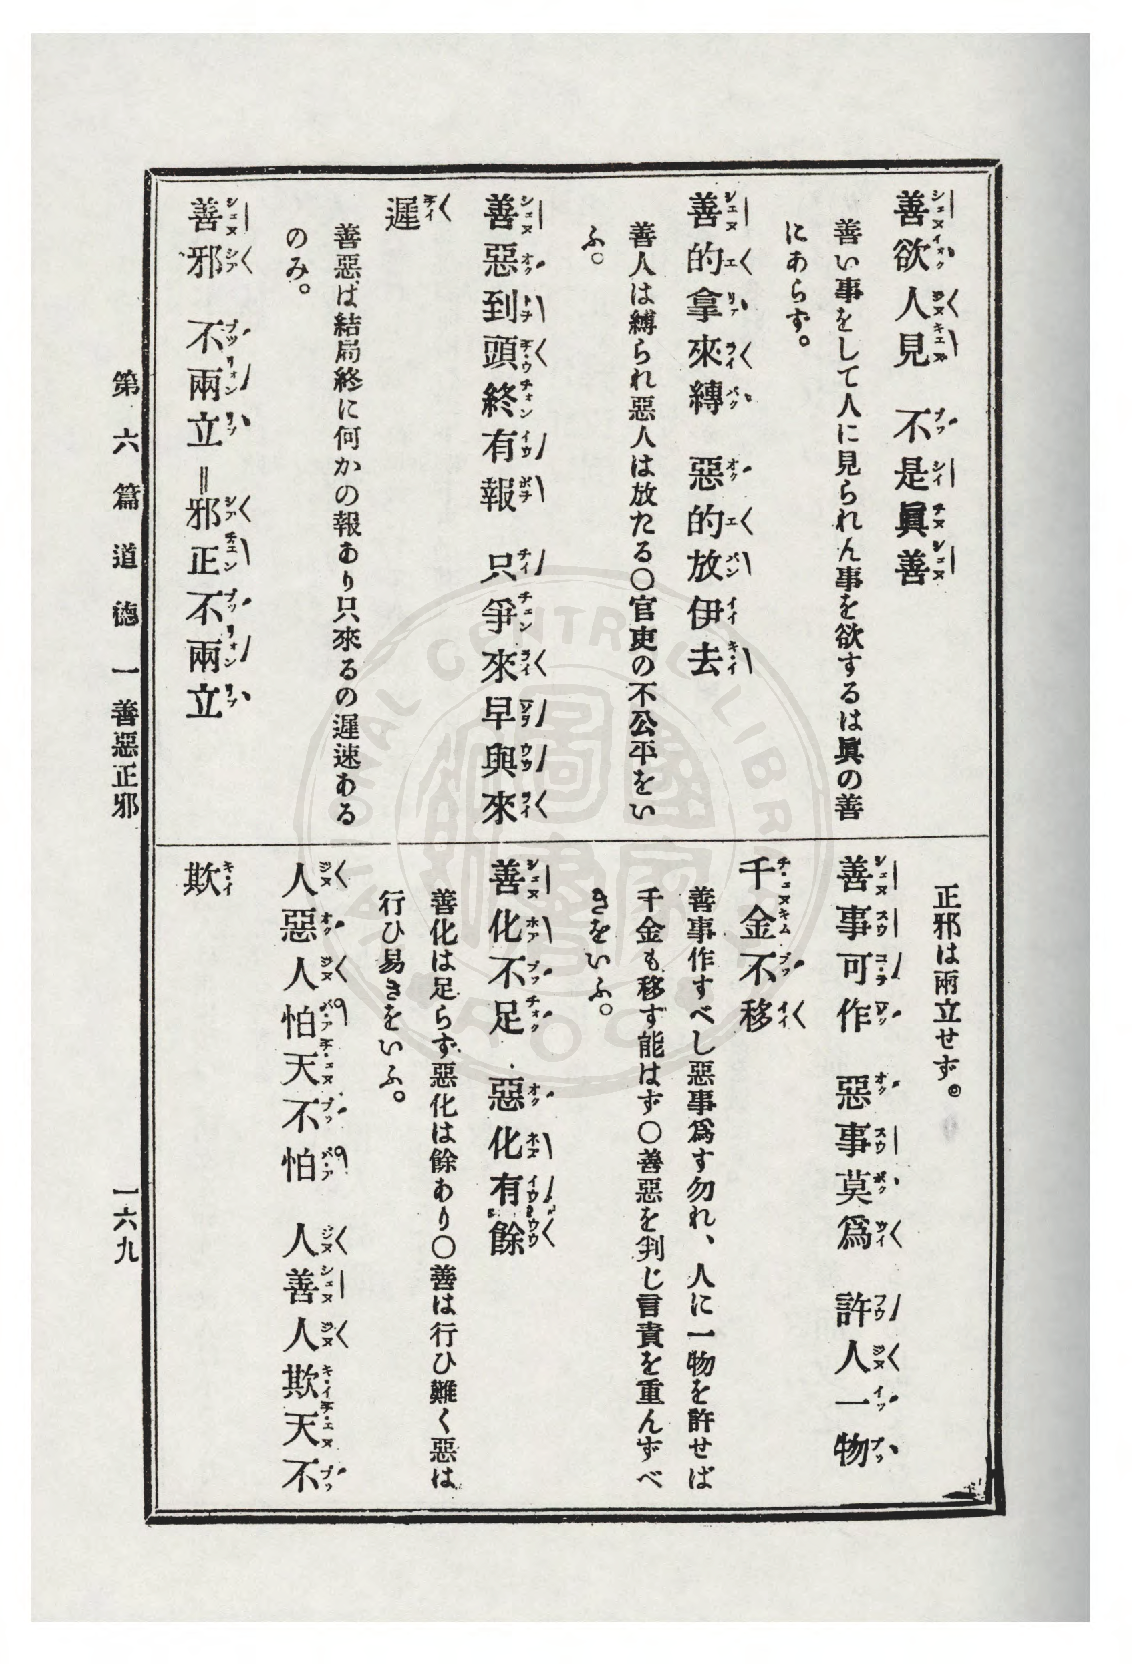 善欲人見　不是眞善
善い事をして人に見られん事を欲するは眞の善
にあらず。
善的拿來縛　惡的放伊去
善人は縛られ惡人は放たる〇官吏の不公平をい
ふ。
善惡到頭終有報　只爭來早與來
遲
善惡は結局終に何かの報あり只來るの遲速ある
のみ。
善邪　不兩立＝邪正不兩立
正邪は兩立せず。
善事可作　惡事莫爲　許人一物
千金不移
善事作すべし惡事爲す勿れ、人に一物を許せば
千金も移す能はず〇善惡を判じ言責を重んずべ
きをいふ。
善化不足　惡化有餘
善化は足らず惡化は餘あり〇善は行ひ難く惡は
行ひ易きをいふ。
人惡人怕天不怕　人善人欺天不
欺
第六篇　道德　一善惡正邪
一六九
NATIONAL CENTRAL LIBRARY